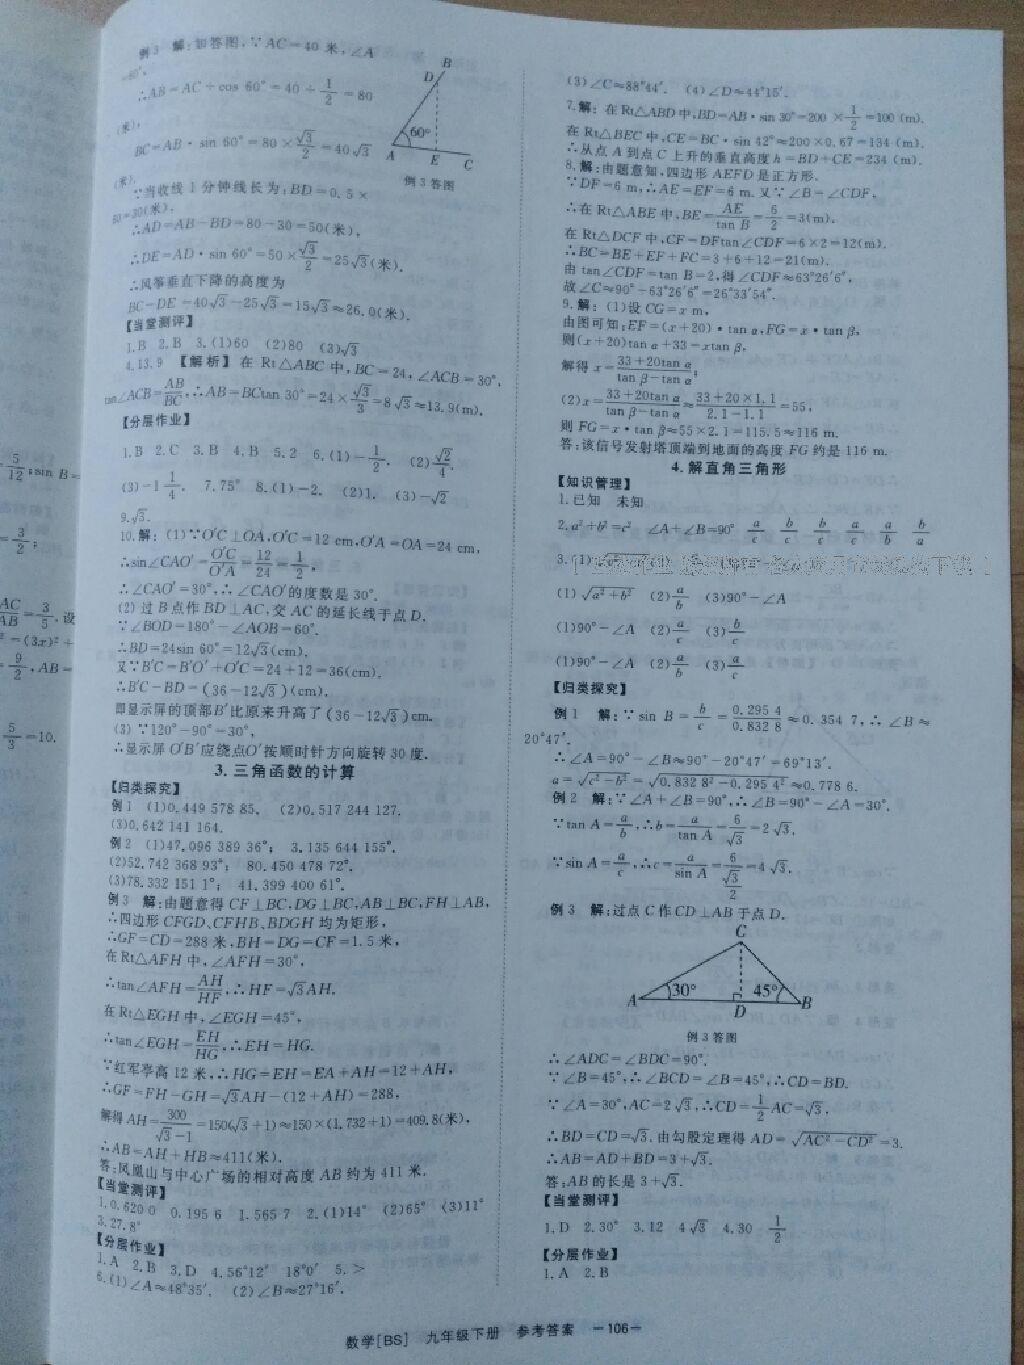 例3 解:如答图,∵AC=40米,∠A
=60°,
∴AB=AC÷cos 60°=40÷1/2=80
(米),
BC=AB·sin 60°=80×√3/2=40√3
(米),
B
D
60°
A E C
例3答图
∵当收线1分钟线长为:BD=0.5×
60=30(米),
∴AD=AB-BD=80-30=50(米),
∴DE=AD·sin 60°=50×√3/2=25√3(米).
∴风筝垂直下降的高度为
BC-DE=40√3-25√3=15√3≈26.0(米).
【当堂测评】
1.B 2.B 3.(1)60 (2)80 (3)√3
4.13.9 【解析】在Rt△ABC中,BC=24,∠ACB=30°,
tan∠ACB=AB/BC,∴AB=BCtan 30°=24×√3/3=8√3≈13.9(m).
【分层作业】
1.B 2.C 3.B 4.B 5.2 6.(1)-1/2. (2)√2/4.
(3)-1 1/4. 7.75° 8.(1)-2. (2)1. (3)-√2
9.√3.
10.解:(1)∵O′C⊥OA,O′C=12 cm,O′A=OA=24 cm,
∴sin∠CAO′=O′C/O′A=12/24=1/2,
∴∠CAO′=30°,∴∠CAO′的度数是30°.
(2)过B点作BD⊥AC,交AC的延长线于点D.
∵∠BOD=180°-∠AOB=60°.
∴BD=24sin 60°=12√3(cm).
又∵B′C=B′O′+O′C=24+12=36(cm),
∴B′C-BD=(36-12√3)(cm).
即显示屏的顶部B′比原来升高了(36-12√3)cm.
(3)∵120°-90°=30°,
∴显示屏O′B′应绕点O′按顺时针方向旋转30度.
3.三角函数的计算
【归类探究】
例1 (1)0.449 578 85. (2)0.517 244 127.
(3)0.642 141 164.
例2 (1)47.096 389 36°; 3.135 644 155°.
(2)52.742 368 93°; 80.450 478 72°.
(3)78.332 151 1°; 41.399 400 61°.
例3 解:由题意得CF⊥BC,DG⊥BC,AB⊥BC,FH⊥AB,
∴四边形CFGD、CFHB、BDGH均为矩形,
∴GF=CD=288米,BH=DG=CF=1.5米,
在Rt△AFH中,∠AFH=30°,
∴tan∠AFH=AH/HF,∴HF=√3AH.
在Rt△EGH中,∠EGH=45°,
∴tan∠EGH=EH/HG,∴EH=HG.
∵红军亭高12米,∴HG=EH=EA+AH=12+AH,
∴GF=FH-GH=√3AH-(12+AH)=288,
解得AH=300/(√3-1)=150(√3+1)≈150×(1.732+1)=409.8(米),
∴AB=AH+HB≈411(米).
答:凤凰山与中心广场的相对高度AB约为411米.
【当堂测评】
1.0.620 0 0.195 6 1.565 7 2.(1)14° (2)65° (3)11°
3.27.8°
【分层作业】
1.A 2.B 3.D 4.56°12′ 18°0′ 5.>
6.(1)∠A≈48°35′. (2)∠B≈27°16′.
(3)∠C≈88°44′. (4)∠D≈44°15′.
7.解:在Rt△ABD中,BD=AB·sin 30°=200×1/2=100(m),
在Rt△BEC中,CE=BC·sin 42°≈200×0.67=134(m).
∴从点A到点C上升的垂直高度h=BD+CE=234(m).
8.解:由题意知,四边形AEFD是正方形.
∵DF=6 m,∴AE=EF=6 m.又∵∠B=∠CDF,
∴在Rt△ABE中,BE=AE/tan B=6/2=3(m).
在Rt△DCF中,CF=DFtan∠CDF=6×2=12(m).
∴BC=BE+EF+FC=3+6+12=21(m).
由tan∠CDF=tan B=2,得∠CDF≈63°26′6″,
故∠C≈90°-63°26′6″=26°33′54″.
9.解:(1)设CG=x m,
由图可知:EF=(x+20)·tan α,FG=x·tan β,
则(x+20)tan α+33=xtan β,
解得x=(33+20tan α)/(tan β-tan α);
(2)x=(33+20tan α)/(tan β-tan α)≈(33+20×1.1)/(2.1-1.1)=55,
则FG=x·tan β≈55×2.1=115.5≈116 m.
答:该信号发射塔顶端到地面的高度FG约是116 m.
4.解直角三角形
【知识管理】
1.已知 未知
2.a²+b²=c² ∠A+∠B=90° a/c b/c b/c a/c a/b b/a
3.(1)
(1)√(a²+b²) (2)a/b (3)90°-∠A
(1)90°-∠A (2)a/c (3)b/c
(1)90°-∠A (2)a/b (3)a/c
【归类探究】
例1 解:∵sin B=b/c=0.295 4/0.832 8≈0.354 7,∴∠B≈
20°47′.
∴∠A=90°-∠B≈90°-20°47′=69°13′.
a=√(c²-b²)=√(0.832 8²-0.295 4²)≈0.778 6.
例2 解:∵∠A+∠B=90°,∴∠B=90°-∠A=30°.
∵tan A=a/b,∴b=a/tan A=6/√3=2√3.
∵sin A=a/c,∴c=a/sin A=6/(√3/2)=4√3.
例3 解:过点C作CD⊥AB于点D.
C
30° 45°
A D B
例3答图
∴∠ADC=∠BDC=90°.
∵∠B=45°,∴∠BCD=∠B=45°,∴CD=BD.
∵∠A=30°,AC=2√3,∴CD=1/2AC=√3,
∴BD=CD=√3.由勾股定理得AD=√(AC²-CD²)=3.
∴AB=AD+BD=3+√3.
答:AB的长是3+√3.
【当堂测评】
1.D 2.30° 3.12 4√3 4.30 1/2
【分层作业】
1.A 2.B
数学[BS] 九年级下册 参考答案 -106-